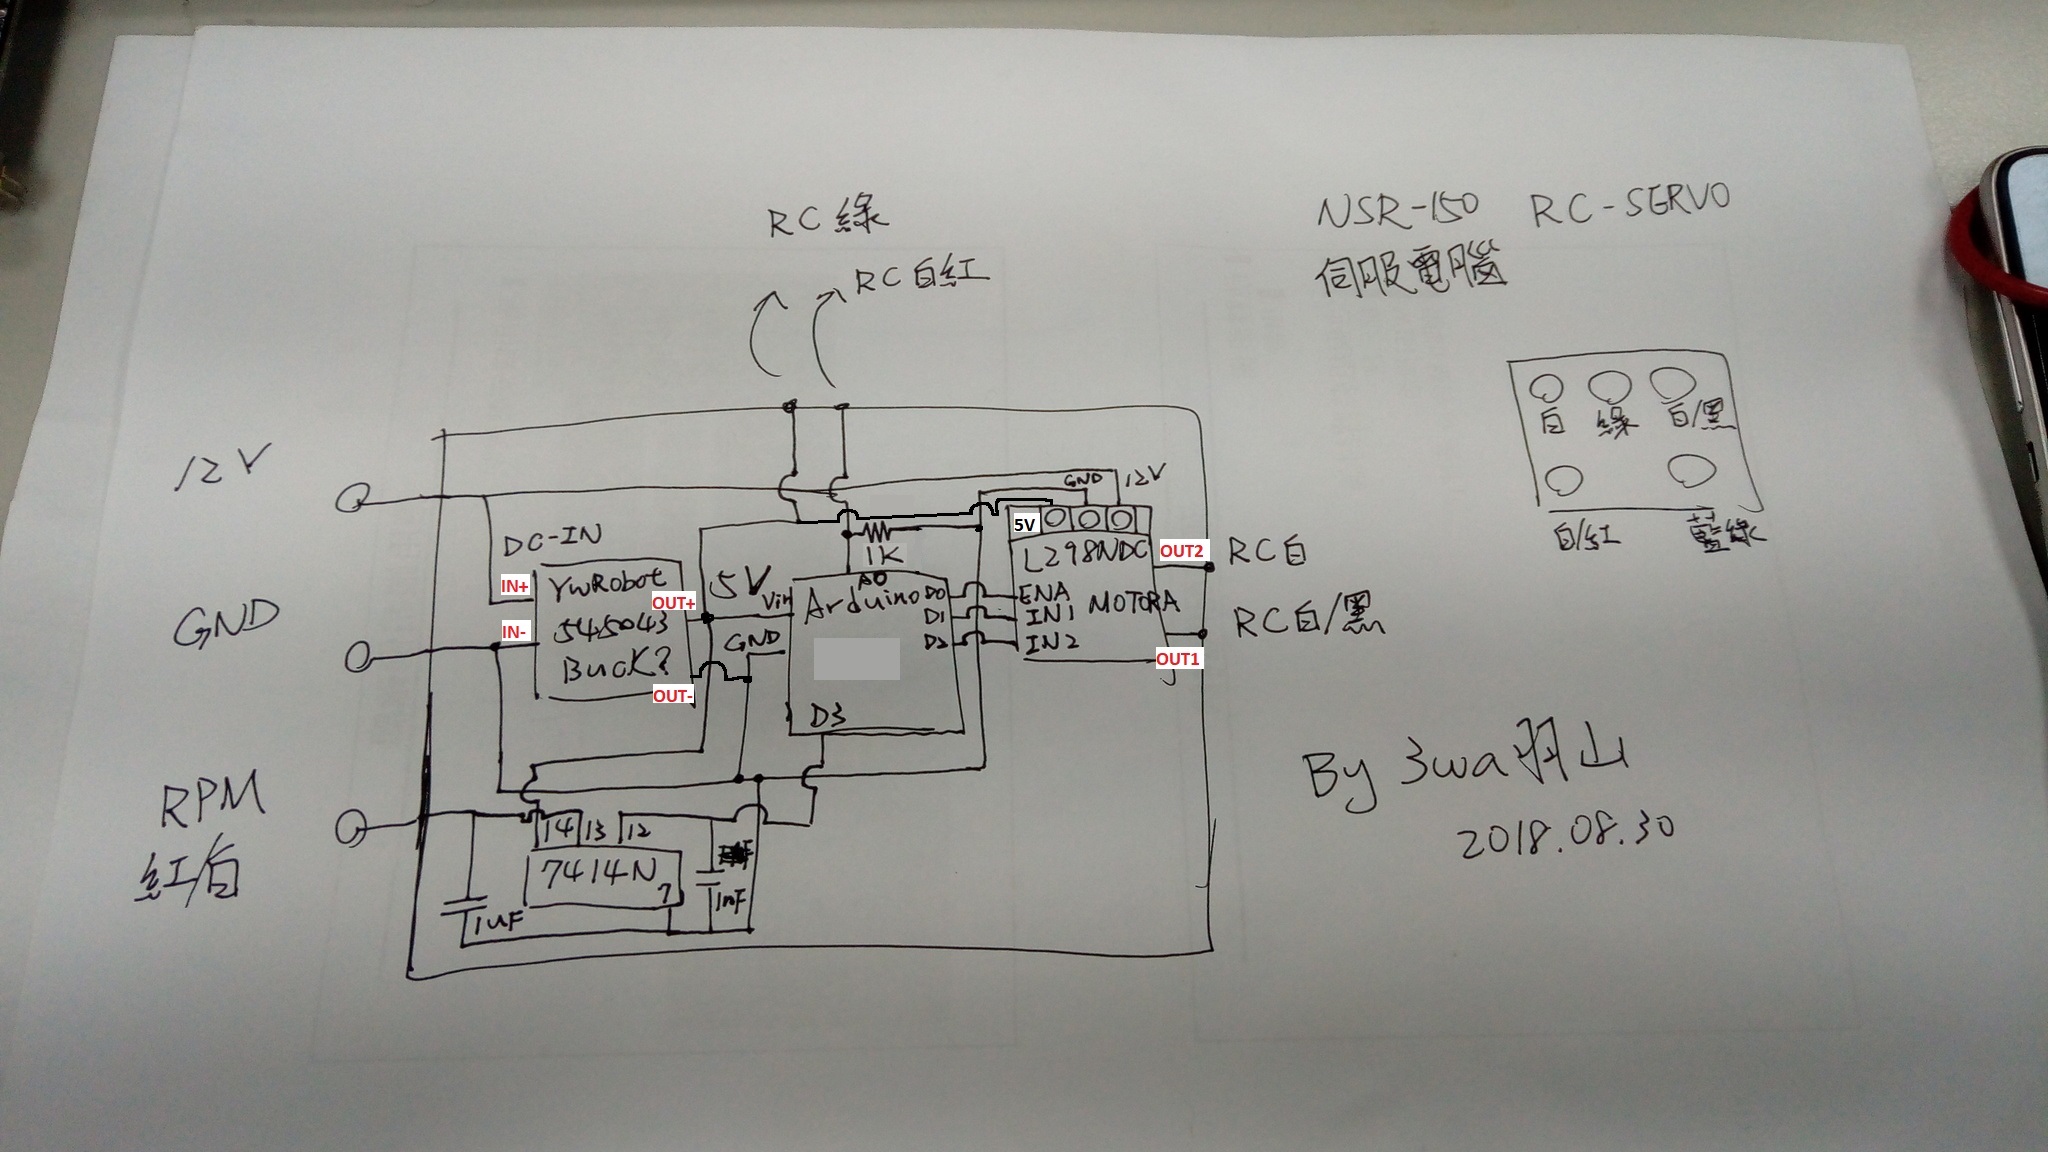 RC綠
RC白紅
NSR-150 RC-SERVO
伺服電腦
白 綠 白/黑
白/紅 藍綠
12V
GND
RPM
紅/白
DC-IN
IN+
IN-
YwRobot
545043
Buck?
OUT+
OUT-
5V
Vin
GND
1K
A0
Arduino
D0
D1
D2
D3
GND
12V
5V
L298NDC
ENA
IN1
IN2
MOTORA
OUT2
OUT1
RC白
RC白/黑
14 13 12
7414N
7
1uF
1nF
By 3wa羽山
2018.08.30